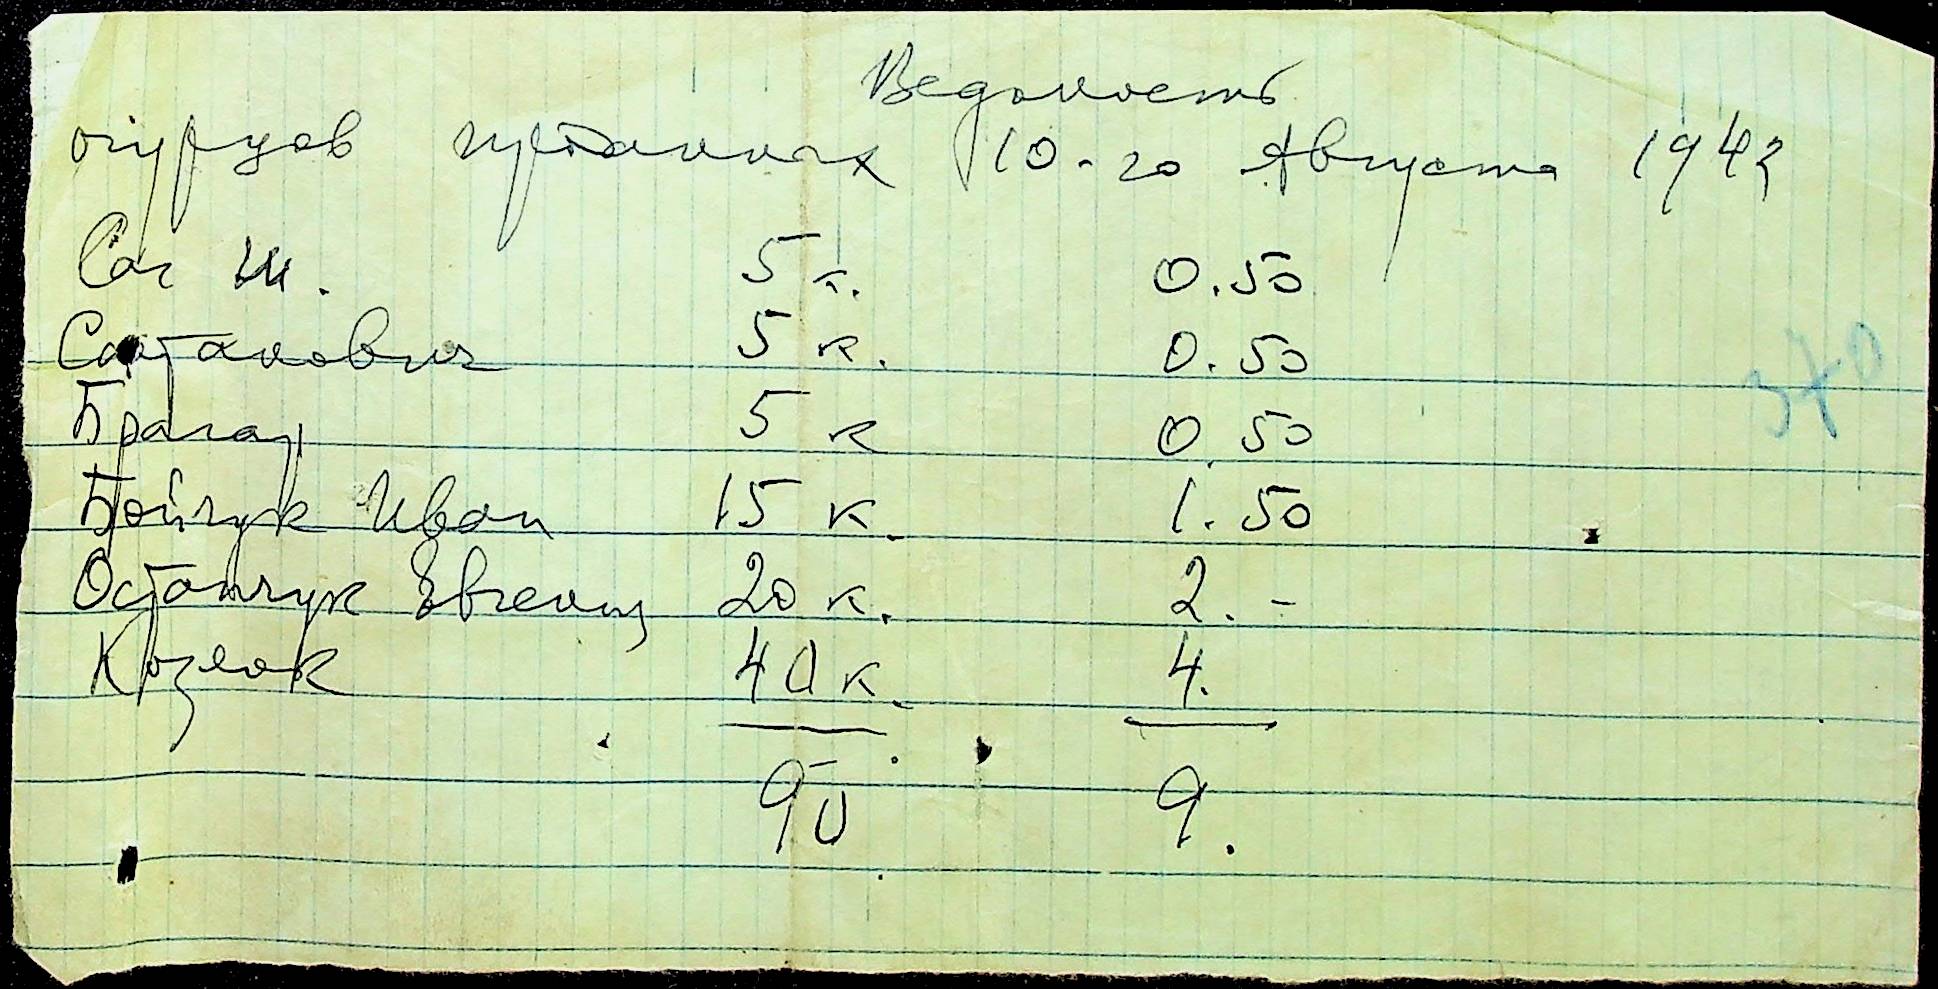 Ведомость
огурцов проданных 10-го Августа 1942
Саг Ш. 5 к. 0.50
5 к. 0.50
Брагар 5 к 0.50
Бойчук Иван 15 к. 1.50
Остапчук Евгениц 20 к. 2.-
Козлок 40 к. 4.
90 9.
370